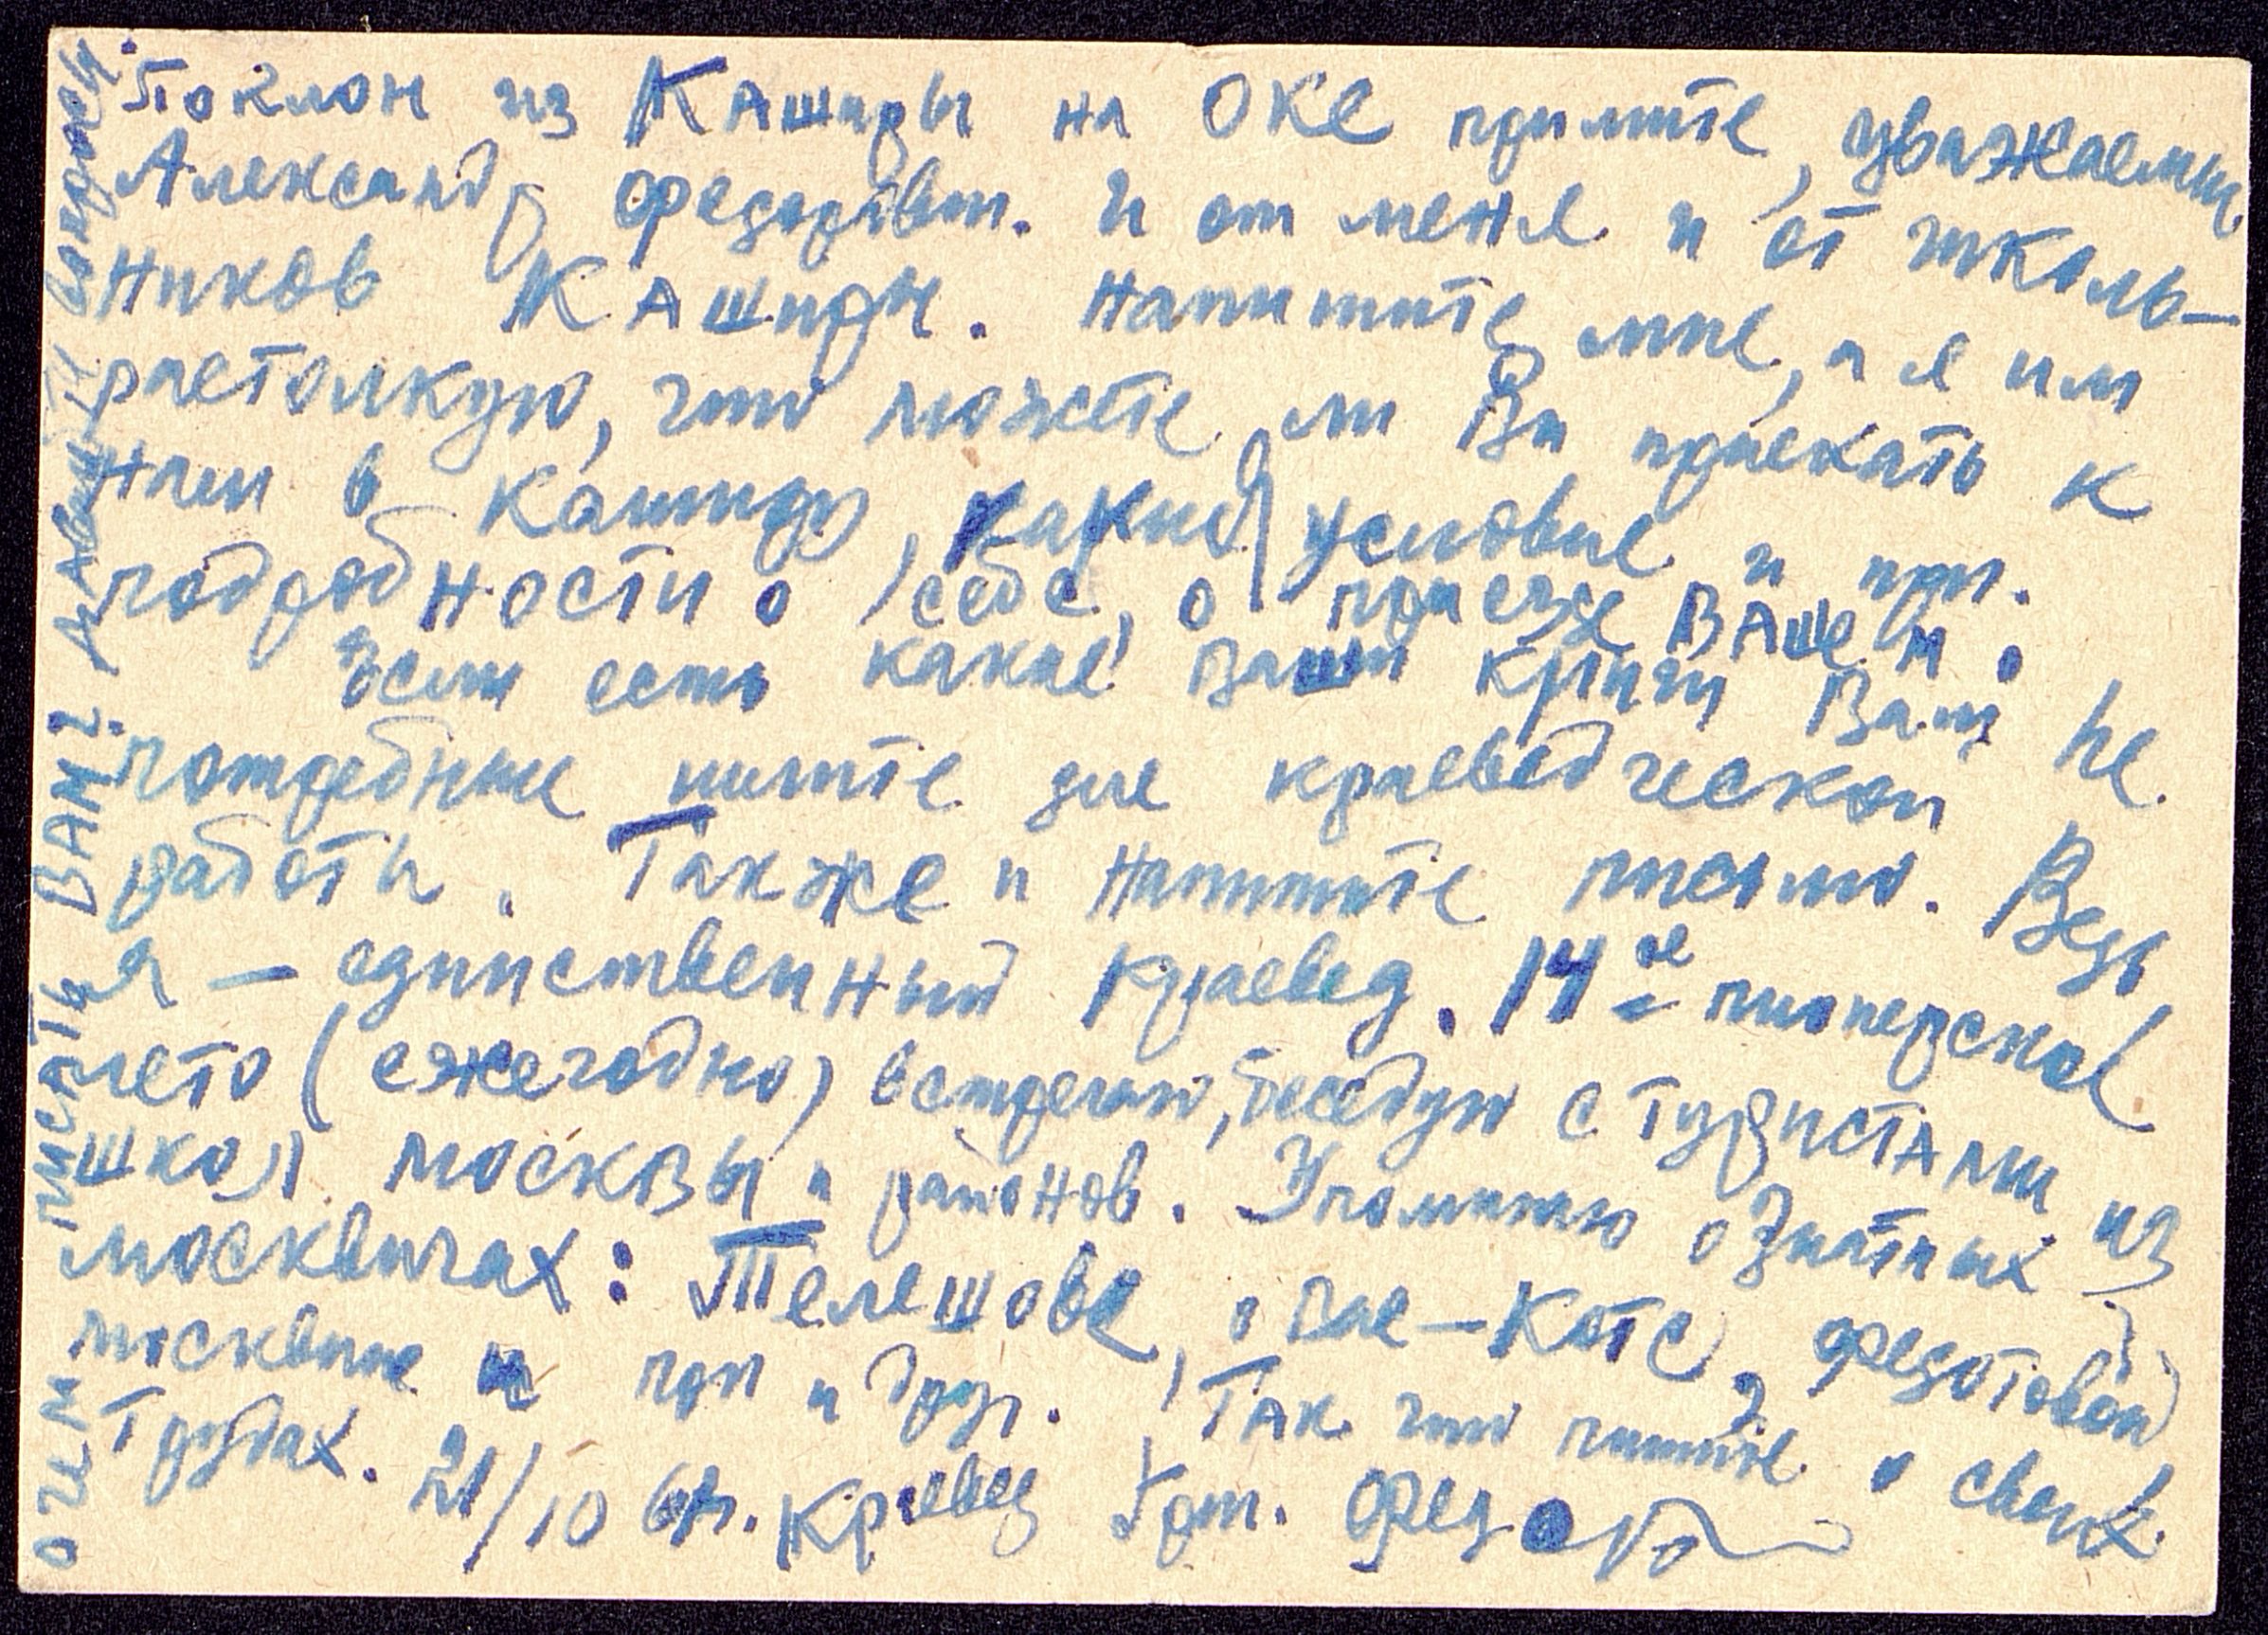 Поклон из Каширы на ОКЕ примите, уважаемый
Александр Федорович. И от меня и от школь-
ников Каширы. Напишите мне, а я им
растолкую, что можете ли Вы приехать к
нам в Каширу, какие условия и пр.
подробности о себе, о приезде ВАШЕМ.
Если есть какие Ваши книги Вам не
потребные шлите для краеведческой
работы. Также и напишите письмо. Ведь
я — единственный краевед. 14ое пионерское
лето (ежегодно) встречаю, беседую с туристами из
школ МОСКВЫ и районов. Упоминаю о знатных
москвичах: Телешове, о Вае-Коте, Федотовой
москвиче и пр и др. Так что пишите о своих
трудах. 21/10 Краевед Федоров
О ЧЕМ ПИСАТЬ ВАМ?